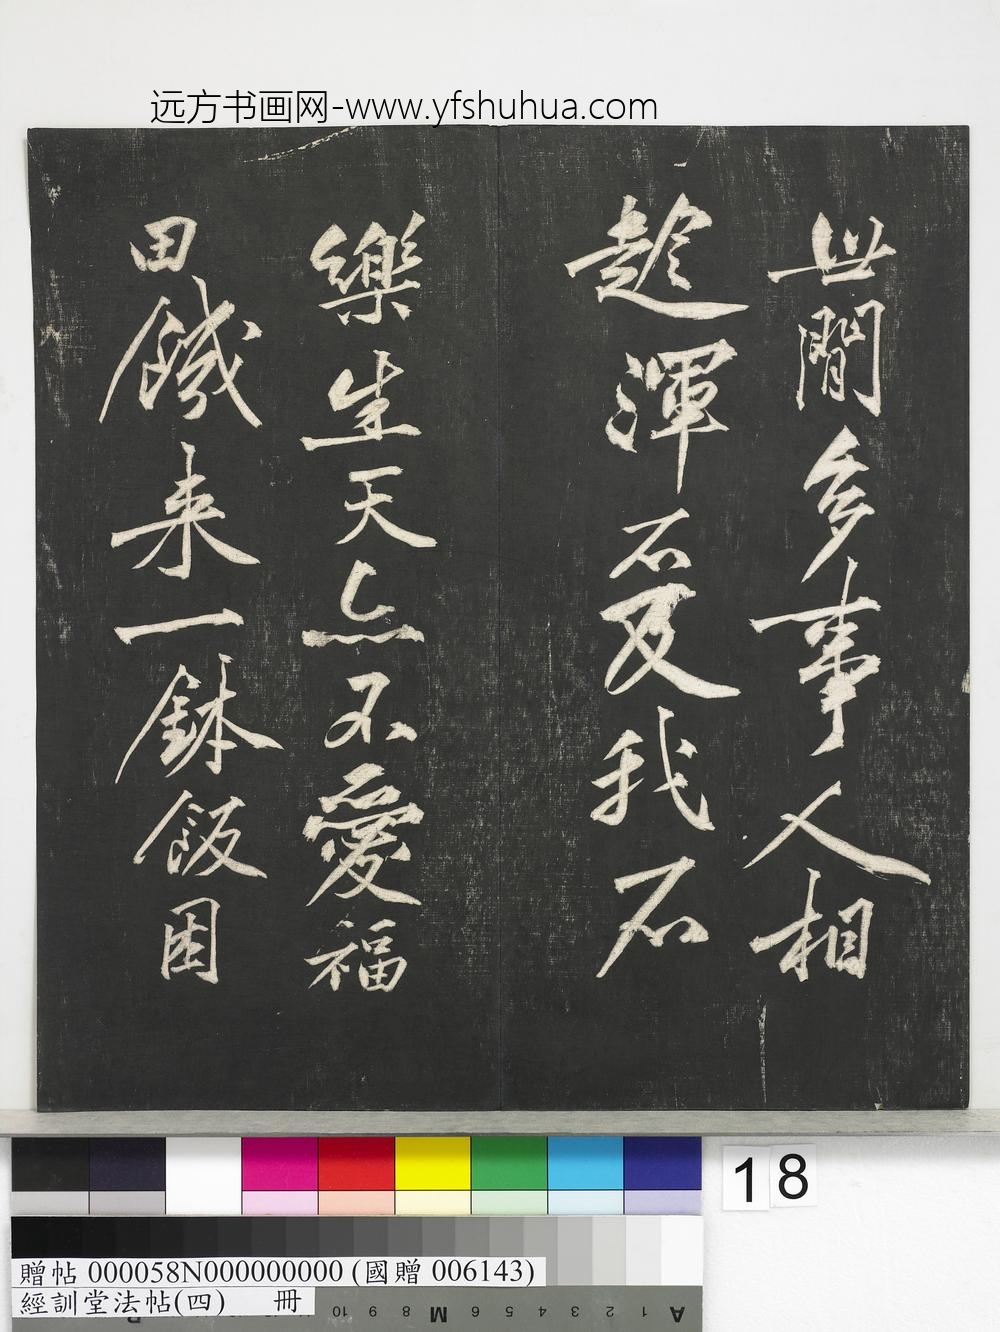 远方书画网-www.yfshuhua.com
世間多事人相
趁渾不及我不
樂生天亦不愛福
田饑来一鉢飯困
18
贈帖 000058N000000000 (國贈 006143)
經訓堂法帖(四) 冊
A 1 2 3 4 5 6 M 8 9 10